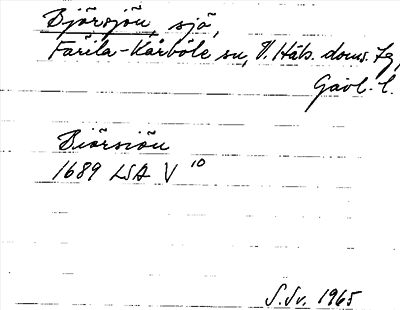 Björsjön, sjö,
Färila-Kårböle sn, V. Häls. doms. tg,
Gävl. l.
Biörsiön
1689 LSA V 10
S.Sv. 1965